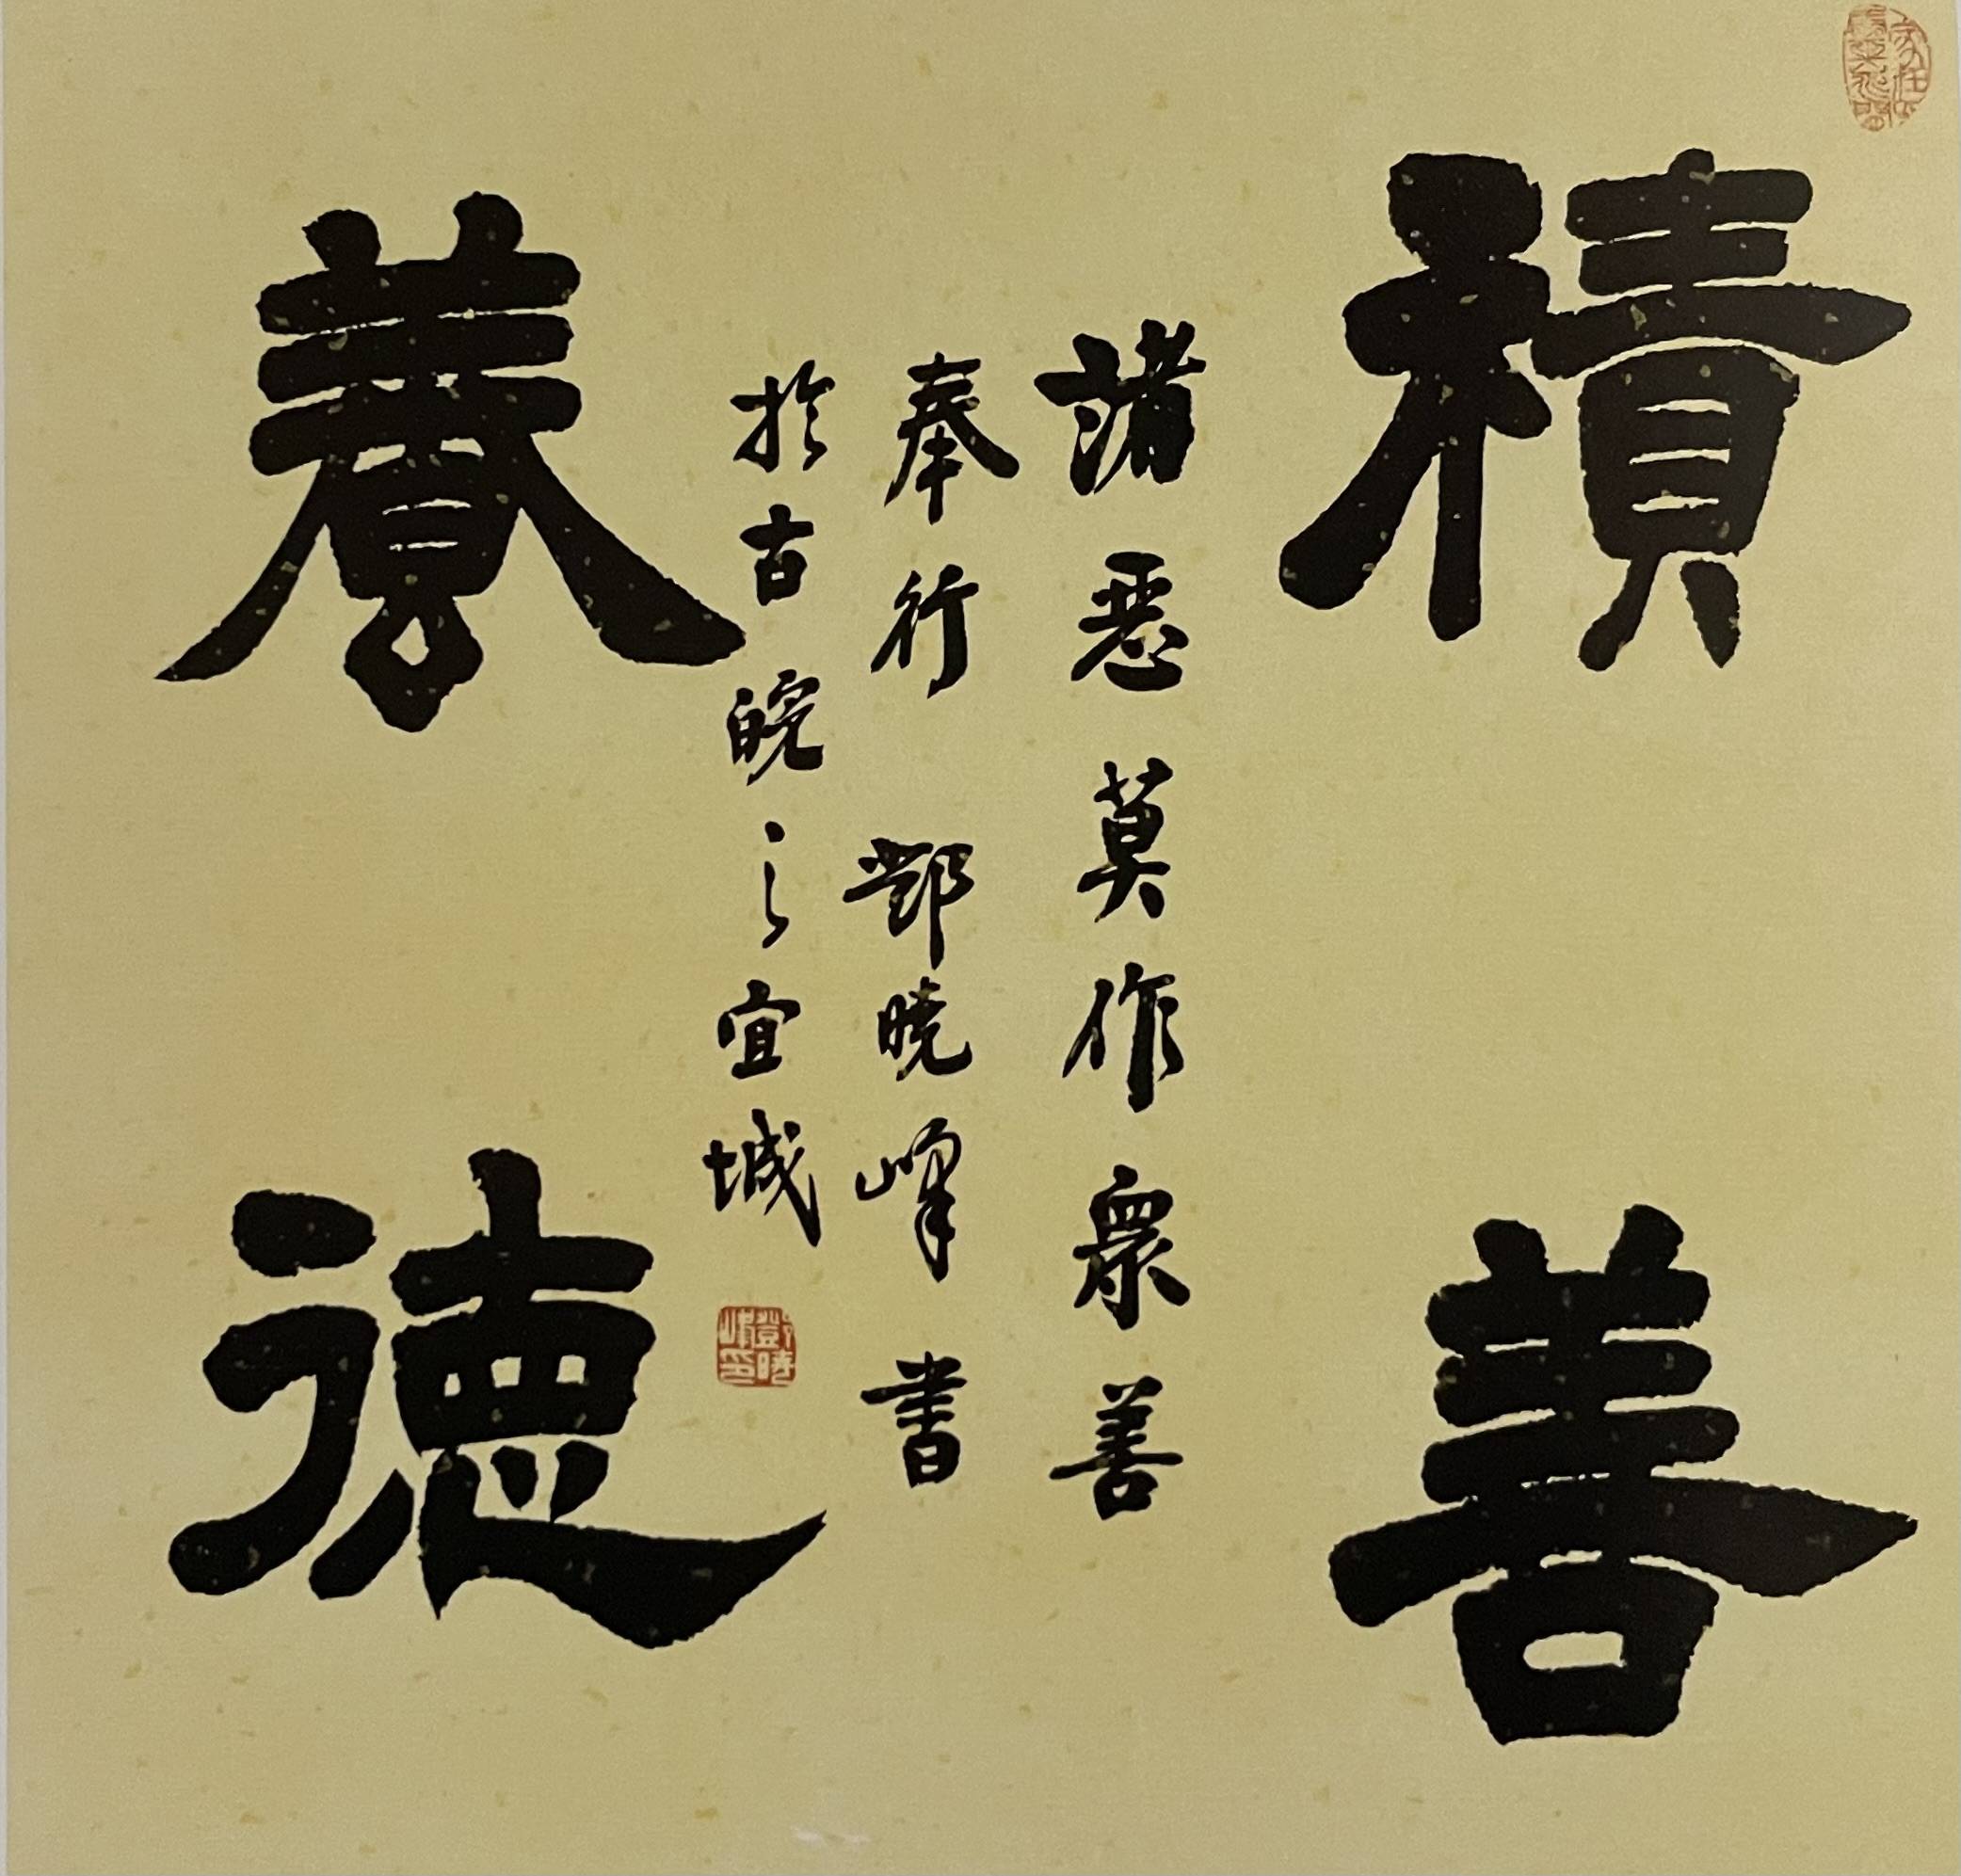 積善
養德
諸惡莫作眾善
奉行 鄧曉峰書
於古皖之宜城
鄧曉峰印